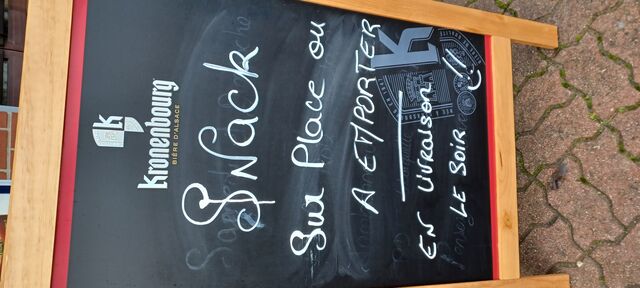 Kronenbourg
BIÈRE D'ALSACE
SNack
Sur Place ou
A EMPORTER
EN LIVRAISON
LE SOIR !!!